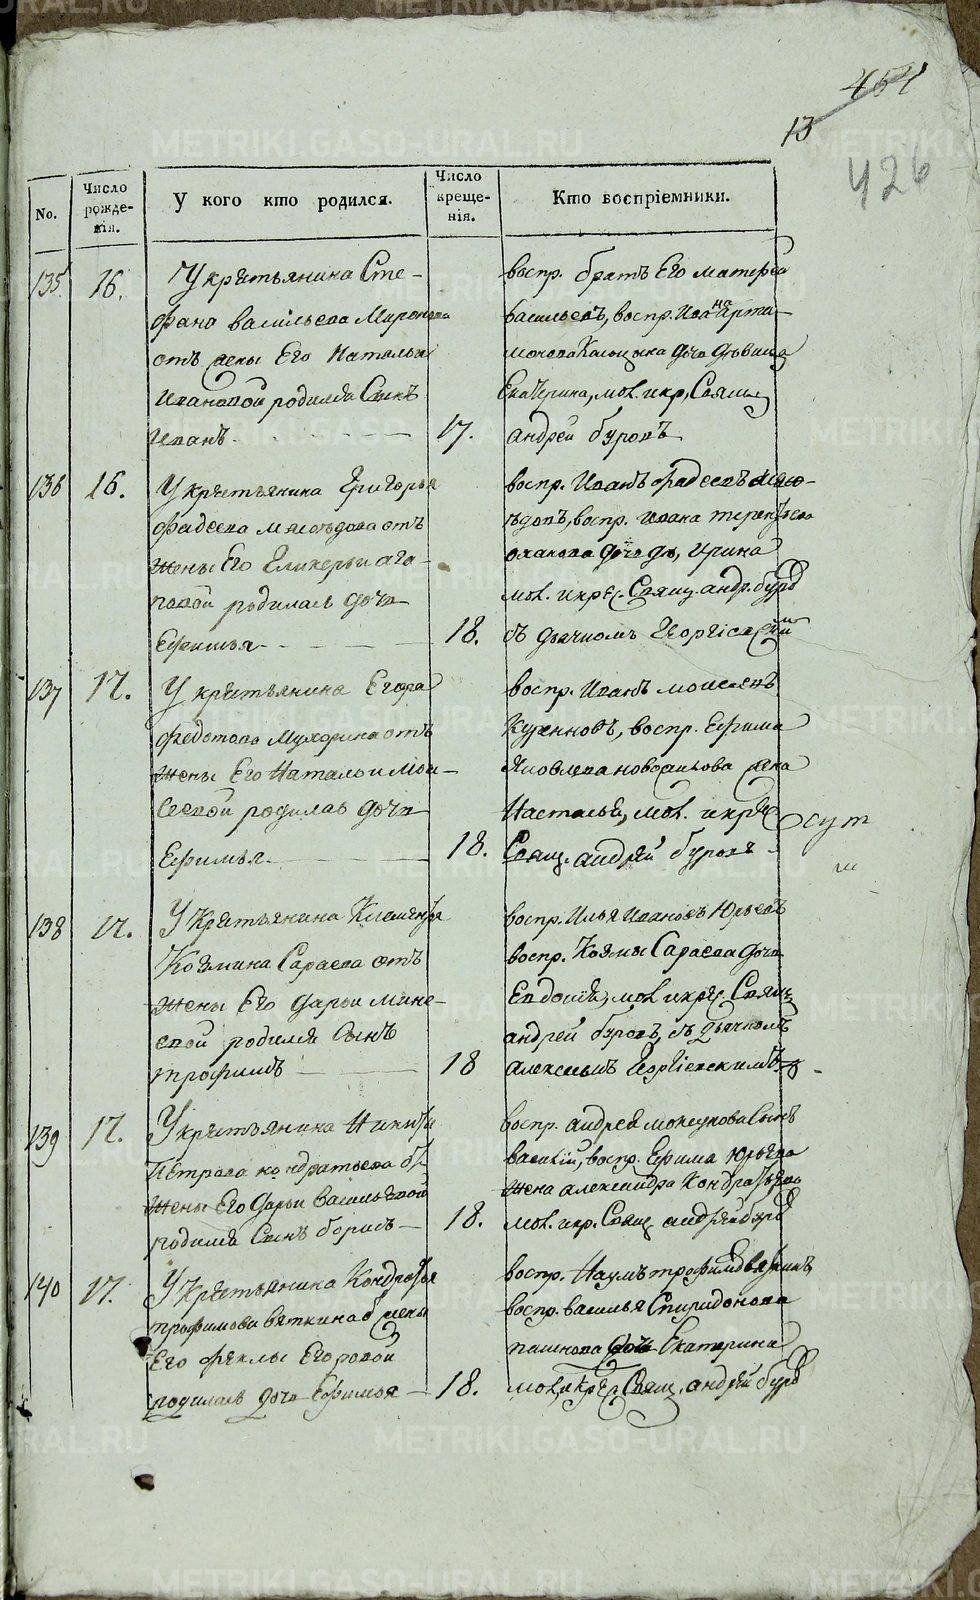 454
13
426
No.
Число рожденія.
У кого кто родился.
Число крещенія.
Кто воспріемники.
135. 16. У крестьянина Сте-
фана васильева Миронова
отъ жены Его Натальи
Ивановой родился Сынъ
Иванъ 17.
воспр. братъ Его матфей
васильевъ, воспр. Ивана Арта-
монова дочь дѣвица
Екатерина, мол. икр. Свящ
андрей буровъ
136 16. У крестьянина Григорья
фадеева мясоѣдова отъ
жены Его Гликерьи ага-
повой родилась дочь
Ефимья 18.
воспр. Иванъ фадеевъ мясо-
ѣдовъ, воспр. Ивана терентьева
дочь дѣ, Ирина
мол. икрес. Свящ. андр. буро
съ дьячкомъ Георгіевским
137 17. У крестьянина Егора
федотова Мухорина отъ
жены Его Натальи Мои-
сеевой родилась дочь
Ефимья 18.
воспр. Иванъ моисеевъ
воспр. Ефима
Яковлева жена
Настасья, мол. икрес.
Свящ. андрей буровъ
138 17. У Крестьянина Климентья
Козмина Сараева отъ
жены Его дарьи мине-
евой родился Сынъ
трофимъ 18
воспр. Илья Ивановъ Юрьевъ
воспр. Козмы Сараева дочь
Евдокия, мол икрес. Свящ
андрей буровъ, съ дьячкомъ
алексеемъ Георгіевскимъ
139 17. У крестьянина Никиты
Петрова кондратьева от
жены Его дарьи васильевой
родился Сынъ борисъ 18.
воспр. андрея сынъ
василій, воспр. Ефима Юрьева
жена александра Кондратьева
мол. икр. Свящ андрей буро
140 17. У Крестьянина Кондратья
трофимова вяткина от жены
Его феклы Егоровой
родилась дочь Ефимья 18.
воспр. Наумъ трофимовъ вяткинъ
воспр. василья Спиридонова
пашкова дочь Екатерина
мол. икрес. Свящ. андрей буро